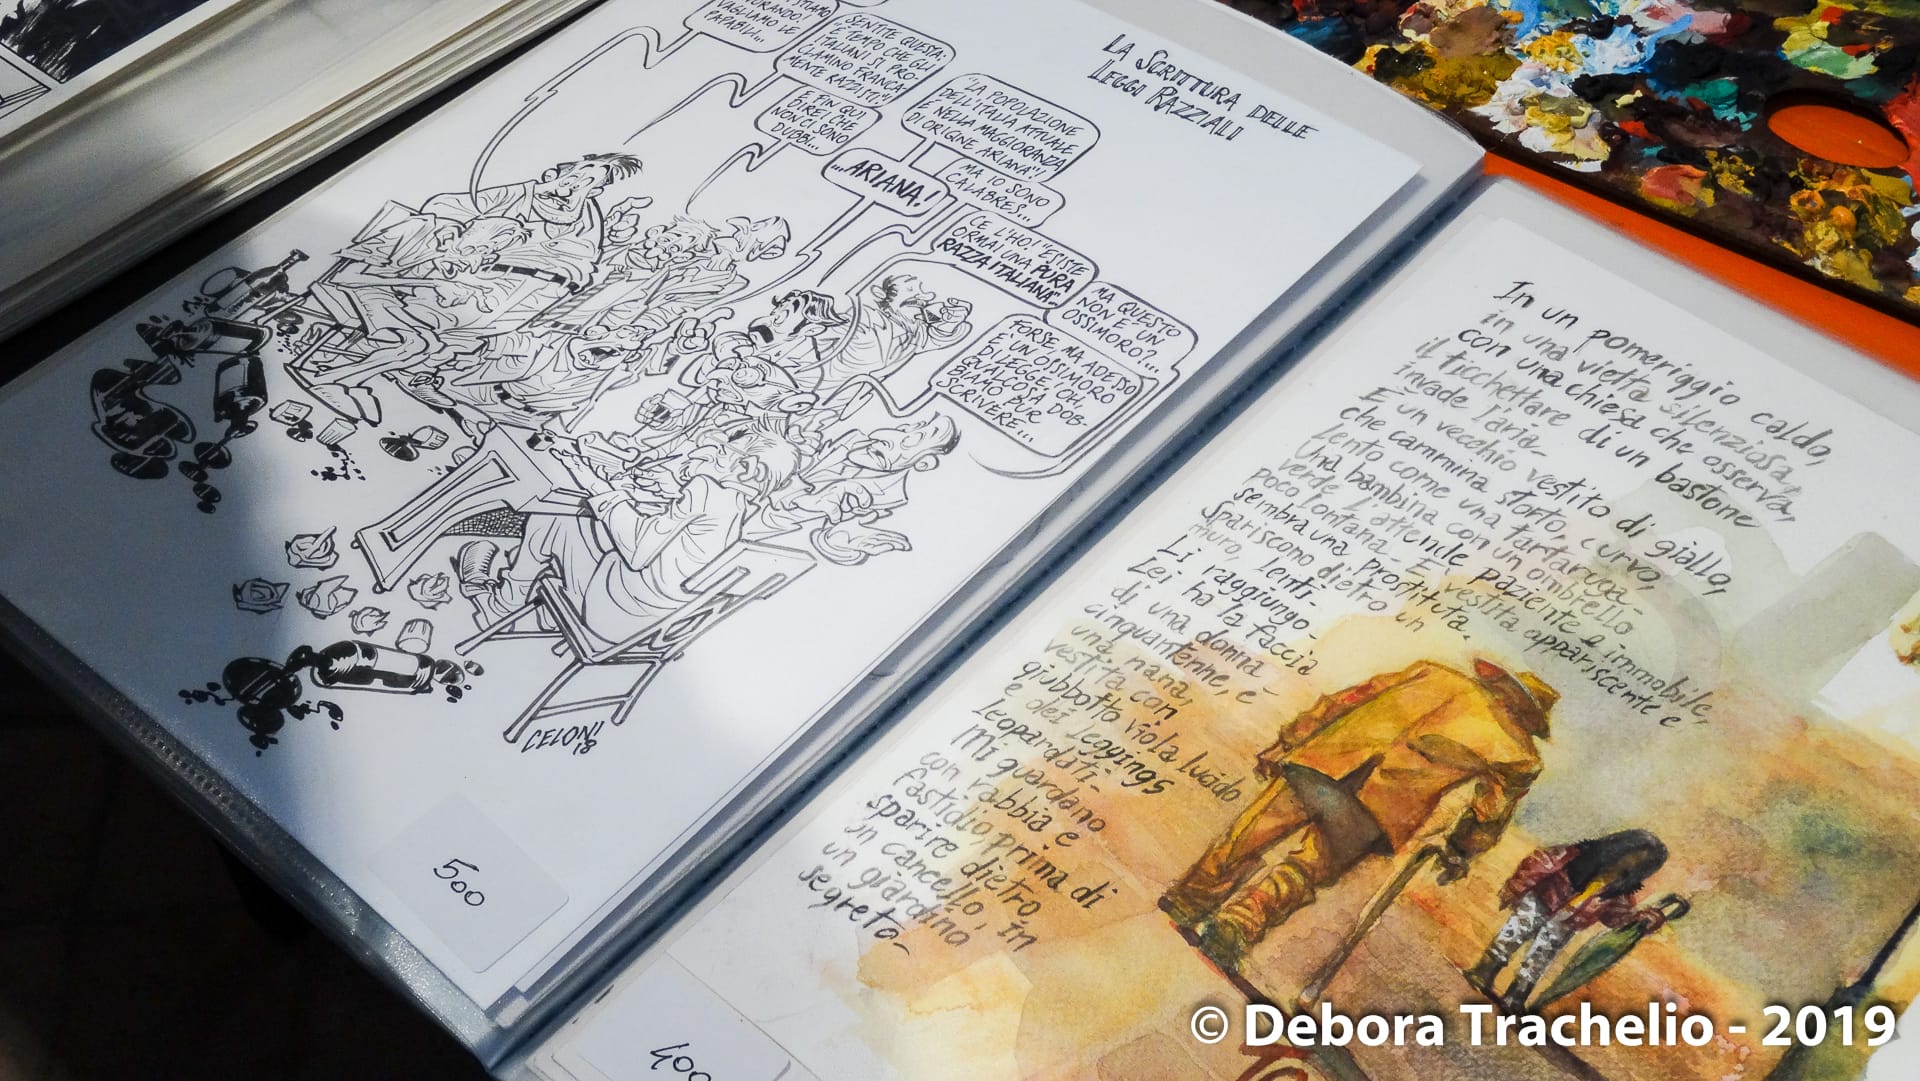 LA SCRITTURA DELLE
LEGGI RAZZIALI
VAGLIAMO LE
PAPABILI...
SENTITE QUESTA:
"È TEMPO CHE GLI
ITALIANI SI PRO-
CLAMINO FRANCA-
MENTE RAZZISTI."
E FIN QUI,
DIREI CHE
NON CI SONO
DUBBI...
"LA POPOLAZIONE
DELL'ITALIA ATTUALE
È NELLA MAGGIORANZA
DI ORIGINE ARIANA"!
...ARIANA!
MA IO SONO
CALABRES...
CE L'HO! "ESISTE
ORMAI UNA PURA
RAZZA ITALIANA".
MA QUESTO
NON È UN
OSSIMORO?...
FORSE MA ADESSO
È UN OSSIMORO
DI LEGGE. OH,
QUALCOSA DOB-
BIAMO PUR
SCRIVERE...
CELONI
18
500
In un pomeriggio caldo,
in una vietta silenziosa,
con una chiesa che osserva,
il ticchettare di un bastone
invade l'aria-
È un vecchio vestito di giallo,
che cammina storto, curvo,
lento come una tartaruga-
Una bambina con un ombrello
verde l'attende paziente e immobile,
poco lontana- È vestita appariscente e
sembra una prostituta.
Spariscono dietro un
muro, lenti-
Li raggiungo-
Lei ha la faccia
di una donna
cinquantenne, è
una nana,
vestita con
giubbotto viola lucido
e dei leggings
leopardati-
Mi guardano
con rabbia e
fastidio, prima di
sparire dietro
un cancello, in
un giardino
segreto-
400
© Debora Trachelio - 2019